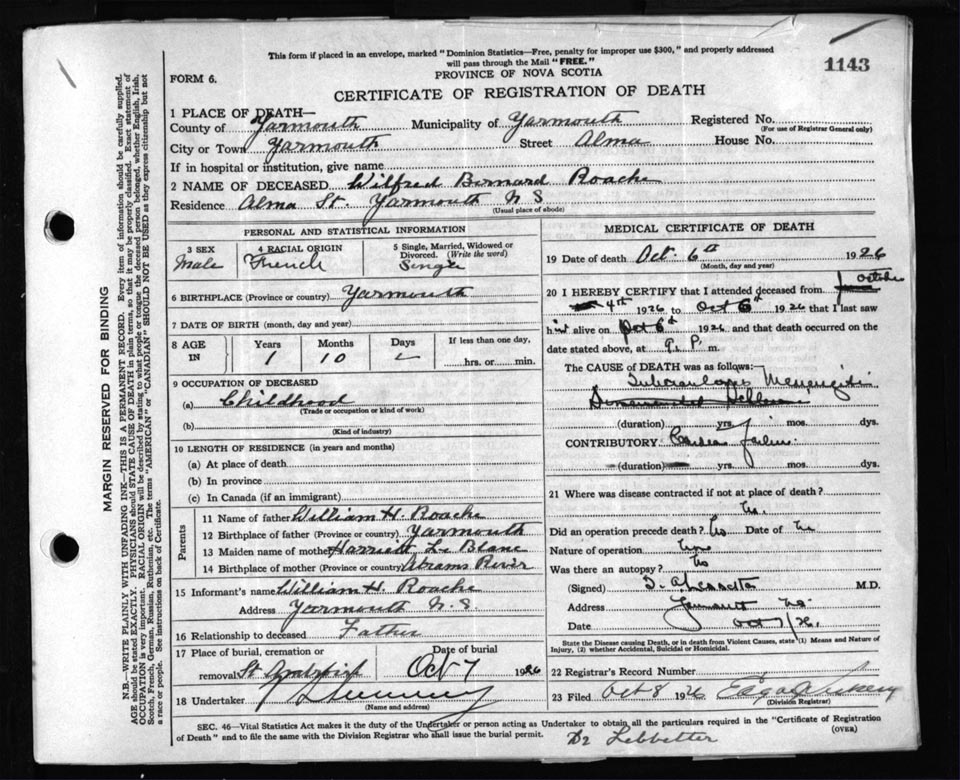 This form if placed in an envelope, marked "Dominion Statistics—Free, penalty for improper use $300," and properly addressed
will pass through the Mail "FREE."
1143
FORM 6.
PROVINCE OF NOVA SCOTIA
CERTIFICATE OF REGISTRATION OF DEATH
1 PLACE OF DEATH—
County of Yarmouth Municipality of Yarmouth Registered No.
(For use of Registrar General only)
City or Town Yarmouth Street Alma House No.
If in hospital or institution, give name
2 NAME OF DECEASED Wilfred Bernard Roache
Residence Alma St. Yarmouth N S
(Usual place of abode)
PERSONAL AND STATISTICAL INFORMATION
3 SEX 4 RACIAL ORIGIN 5 Single, Married, Widowed or
Divorced. (Write the word)
Male French Single
6 BIRTHPLACE (Province or country) Yarmouth
7 DATE OF BIRTH (month, day and year)
8 AGE IN Years Months Days If less than one day,
1 10 hrs. or min.
9 OCCUPATION OF DECEASED
(a) Childhood
(Trade or occupation or kind of work)
(b)
(Kind of industry)
10 LENGTH OF RESIDENCE (in years and months)
(a) At place of death
(b) In province
(c) In Canada (if an immigrant)
Parents
11 Name of father William H. Roache
12 Birthplace of father (Province or country) Yarmouth
13 Maiden name of mother Harriett Le Blanc
14 Birthplace of mother (Province or country) Abrams River
15 Informant's name William H. Roache
Address Yarmouth N. S.
16 Relationship to deceased Father
17 Place of burial, cremation or Date of burial
removal St Oct 7 1926
18 Undertaker
(Name and address)
MEDICAL CERTIFICATE OF DEATH
19 Date of death Oct. 6th 1926
(Month, day and year)
20 I HEREBY CERTIFY that I attended deceased from October
4th 1926 to Oct 6th 1926 that I last saw
him alive on Oct 6th 1926 and that death occurred on
date stated above, at P. m.
The CAUSE OF DEATH was as follows:
Tuberculous Meningitis
(duration) yrs. mos. dys.
CONTRIBUTORY Cardiac failure
(duration) yrs. mos. dys.
21 Where was disease contracted if not at place of death?
No.
Did an operation precede death? No Date of No
Nature of operation
Was there an autopsy? No
(Signed) M.D.
Address Yarmouth N.S.
Date Oct 7/26.
State the Disease causing Death, or in death from Violent Causes, state (1) Means and Nature of
Injury, (2) whether Accidental, Suicidal or Homicidal.
22 Registrar's Record Number
23 Filed Oct 8 1926
(Division Registrar)
SEC. 46—Vital Statistics Act makes it the duty of the Undertaker or person acting as Undertaker to obtain all the particulars required in the "Certificate of Registration
of Death" and to file the same with the Division Registrar who shall issue the burial permit.
(OVER)
Dr Lebbetter
MARGIN RESERVED FOR BINDING
N.B.—WRITE PLAINLY WITH UNFADING INK—THIS IS A PERMANENT RECORD. Every item of information should be carefully supplied.
AGE should be stated EXACTLY. PHYSICIANS should STATE CAUSE OF DEATH in plain terms, so that it may be properly classified. Exact statement of
OCCUPATION is very important. RACIAL ORIGIN will be described by stating to what people or tongue the deceased person belonged, whether English, Irish,
Scotch, French, German, Russian, Ruthenian, etc. The terms "AMERICAN" or "CANADIAN" SHOULD NOT BE USED as they express citizenship but not
a race or people. See instructions on back of Certificate.